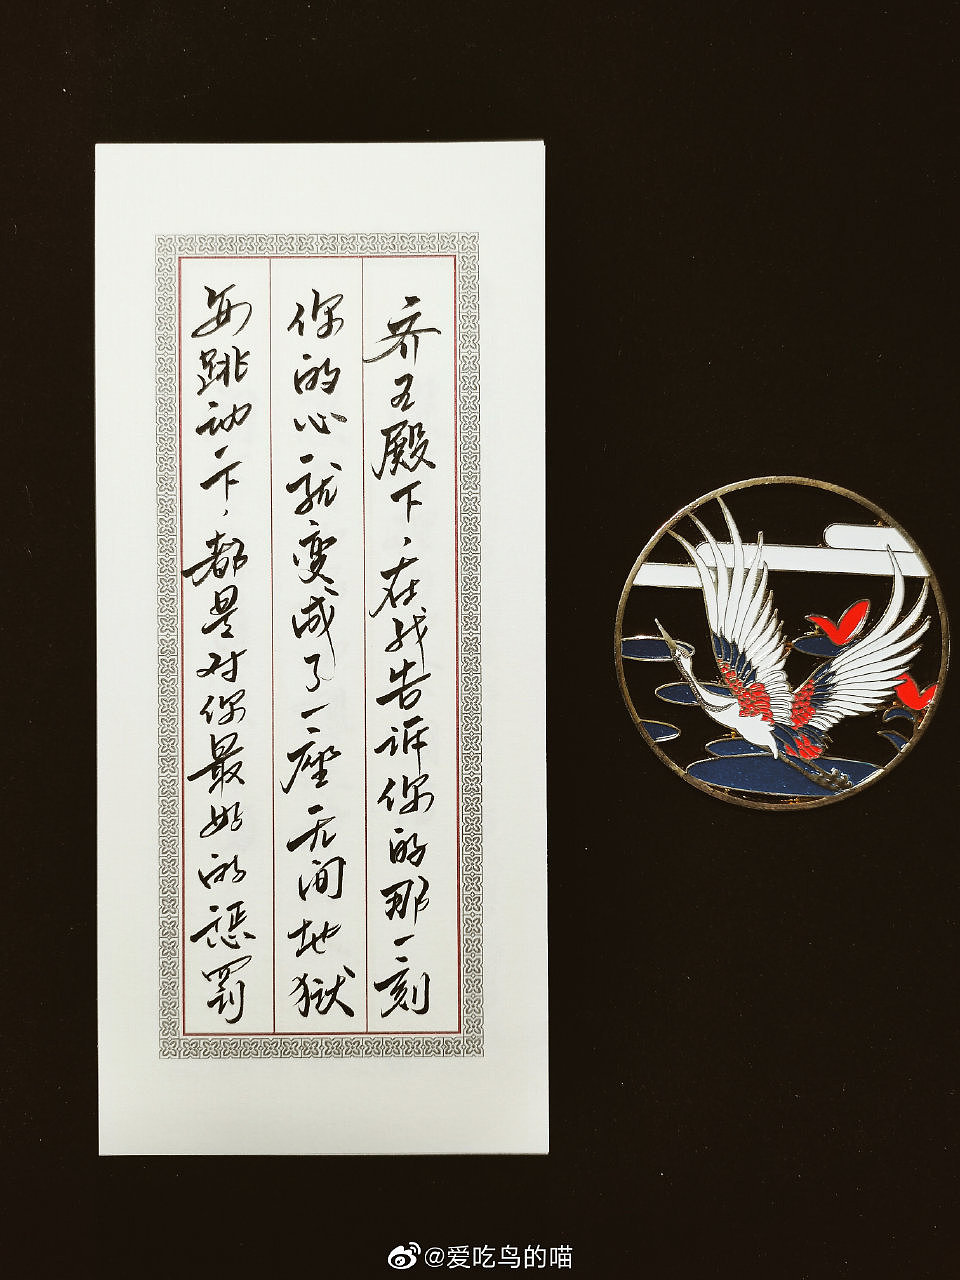 齐王殿下，在我告诉你的那一刻
你的心就变成了一座无间地狱
每跳动一下，都是对你最好的惩罚
@爱吃鸟的喵